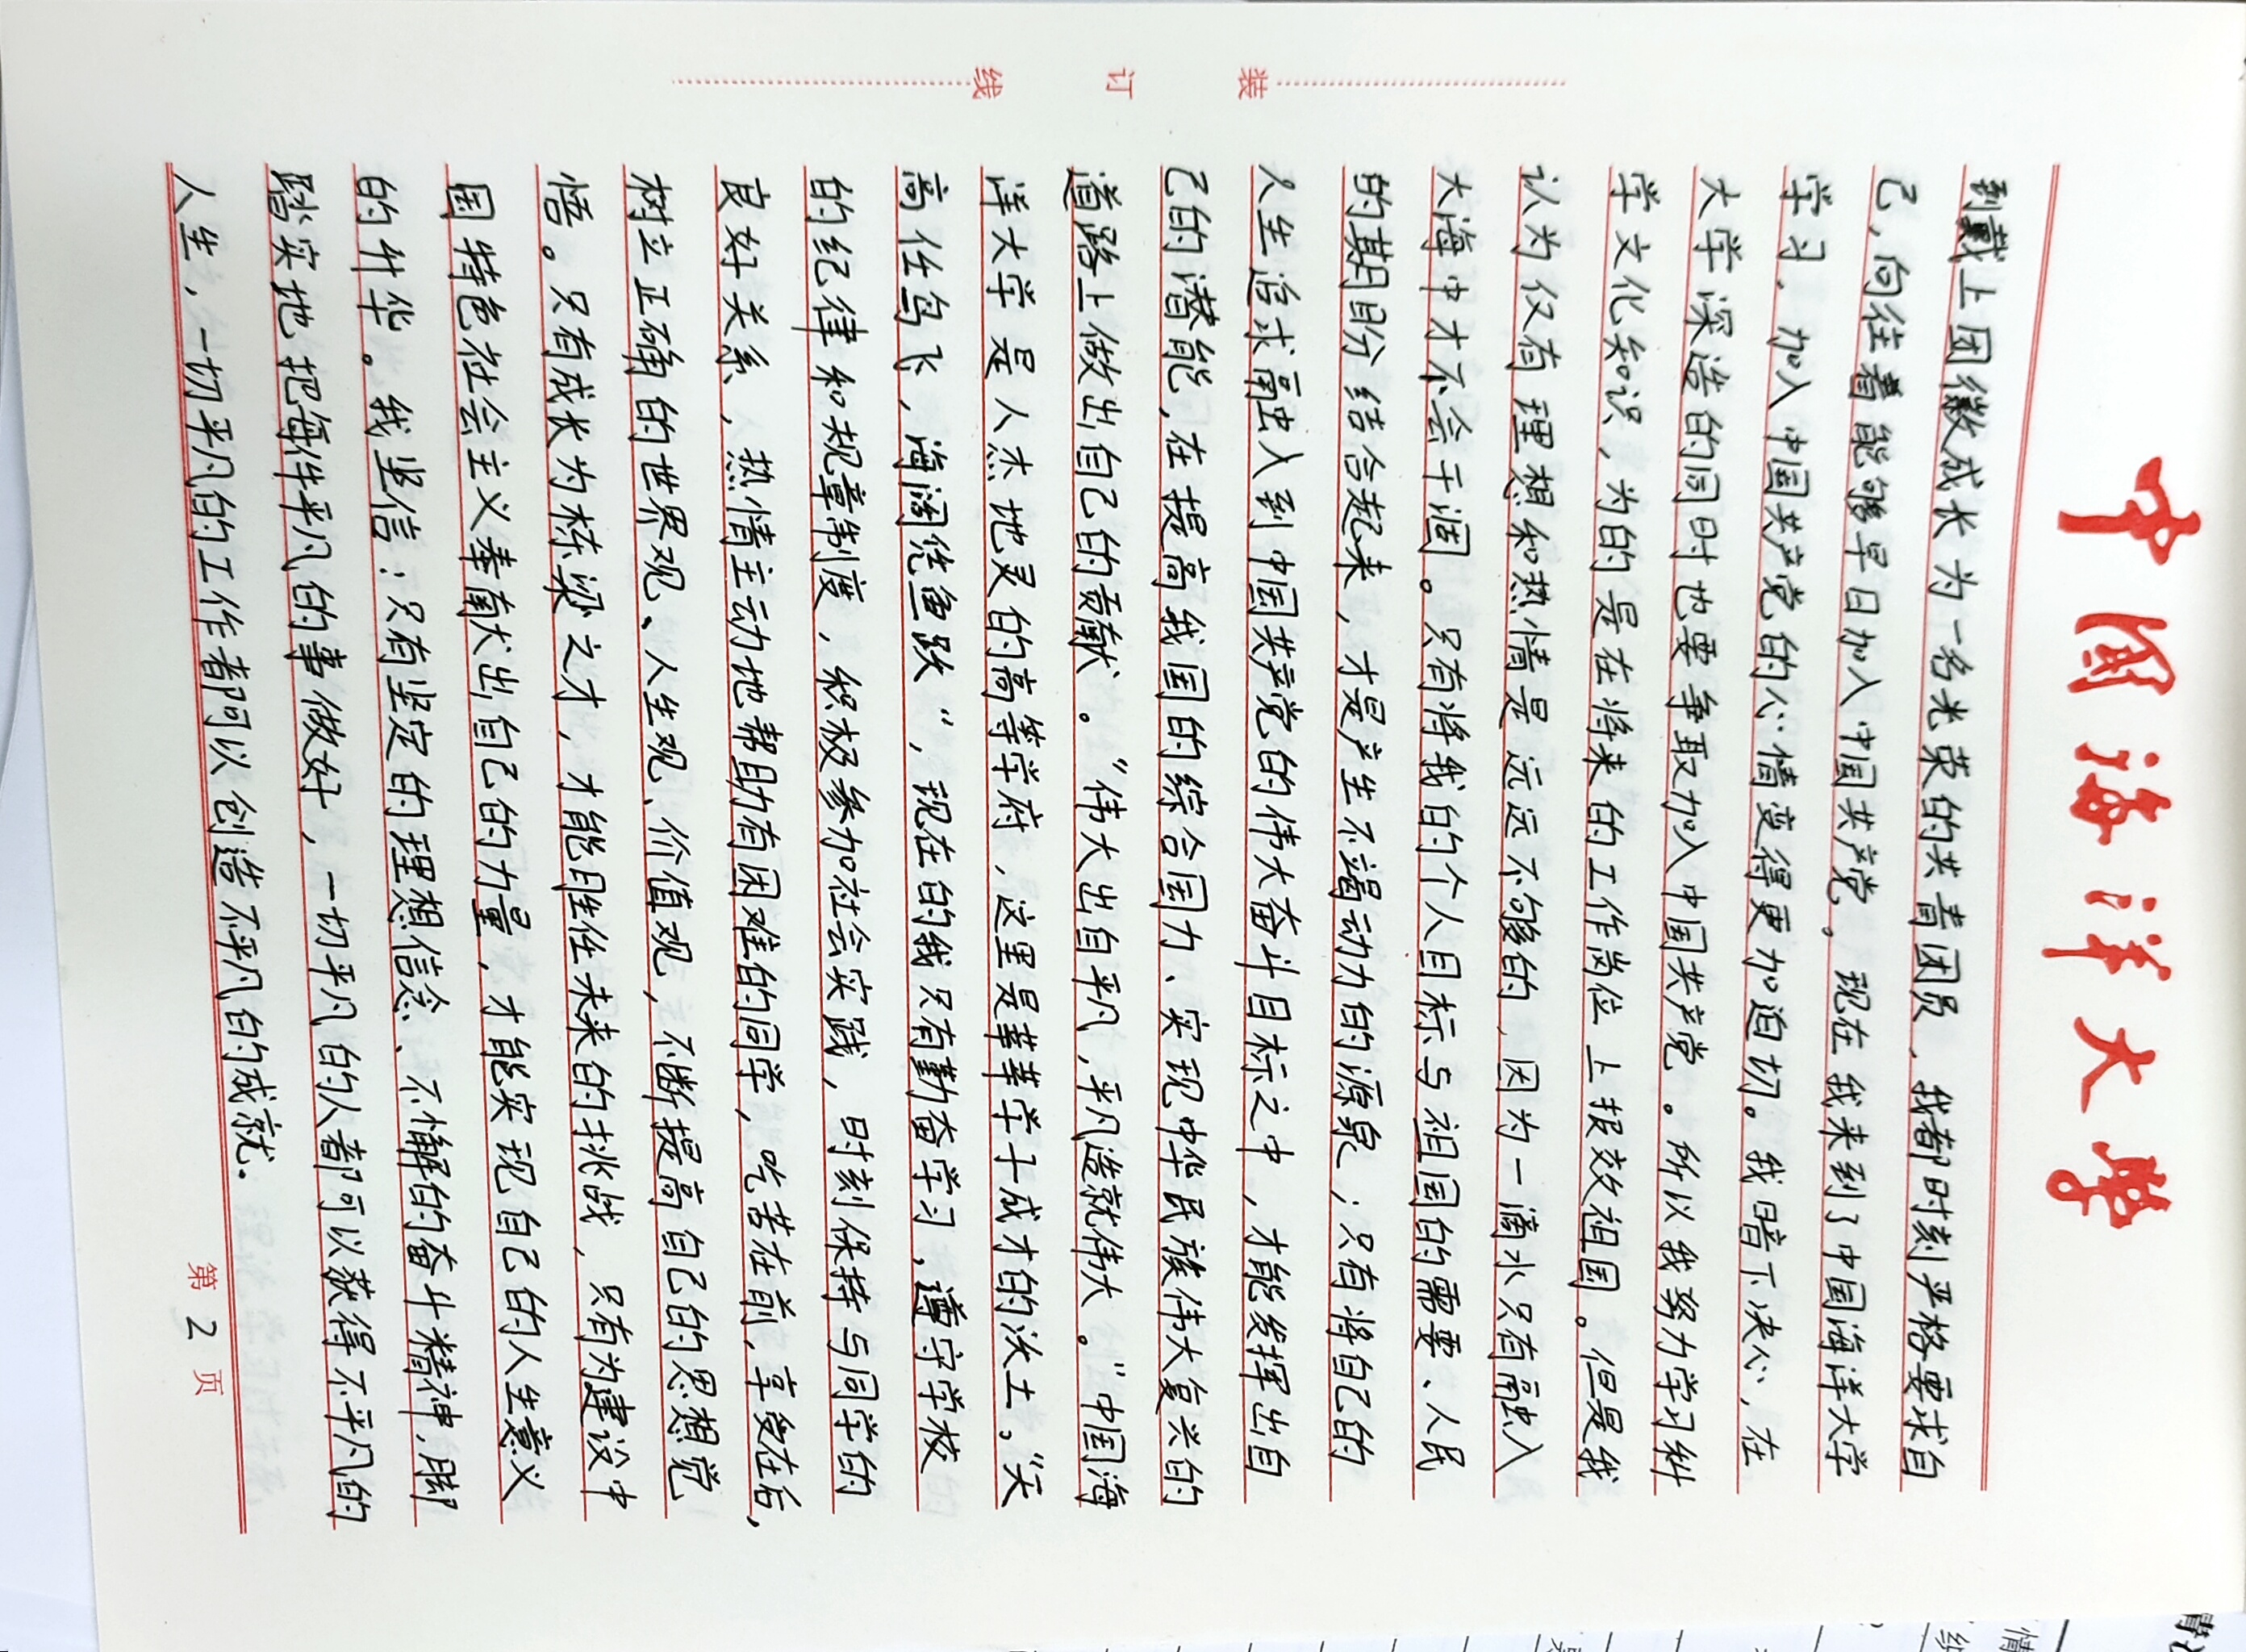 中国海洋大学
到戴上团徽成长为一名光荣的共青团员，我都时刻严格要求自
己，向往着能够早日加入中国共产党。现在我来到了中国海洋大学
学习，加入中国共产党的心情变得更加迫切。我暗下决心，在
大学深造的同时也要争取加入中国共产党。所以我努力学习科
学文化知识，为的是在将来的工作岗位上报效祖国。但是我
认为仅有理想和热情是远远不够的，因为一滴水只有融入
大海中才不会干涸。只有将我的个人目标与祖国的需要、人民
的期盼结合起来，才是产生不竭动力的源泉；只有将自己的
人生追求融入到中国共产党的伟大奋斗目标之中，才能发挥出自
己的潜能，在提高我国的综合国力、实现中华民族伟大复兴的
道路上做出自己的贡献。“伟大出自平凡，平凡造就伟大。”中国海
洋大学是人杰地灵的高等学府，这里是莘莘学子成才的沃土。“天
高任鸟飞，海阔凭鱼跃“，现在的我只有勤奋学习，遵守学校
的纪律和规章制度，积极参加社会实践，时刻保持与同学的
良好关系，热情主动地帮助有困难的同学，吃苦在前，享受在后，
树立正确的世界观、人生观、价值观，不断提高自己的思想觉
悟。只有成长为栋梁之才，才能胜任未来的挑战，只有为建设中
国特色社会主义奉献出自己的力量，才能实现自己的人生意义
的升华。我坚信：只有坚定的理想信念、不懈的奋斗精神，脚
踏实地把每件平凡的事做好，一切平凡的人都可以获得不平凡的
人生，一切平凡的工作都可以创造不平凡的成就.
第2页
装
订
线
情